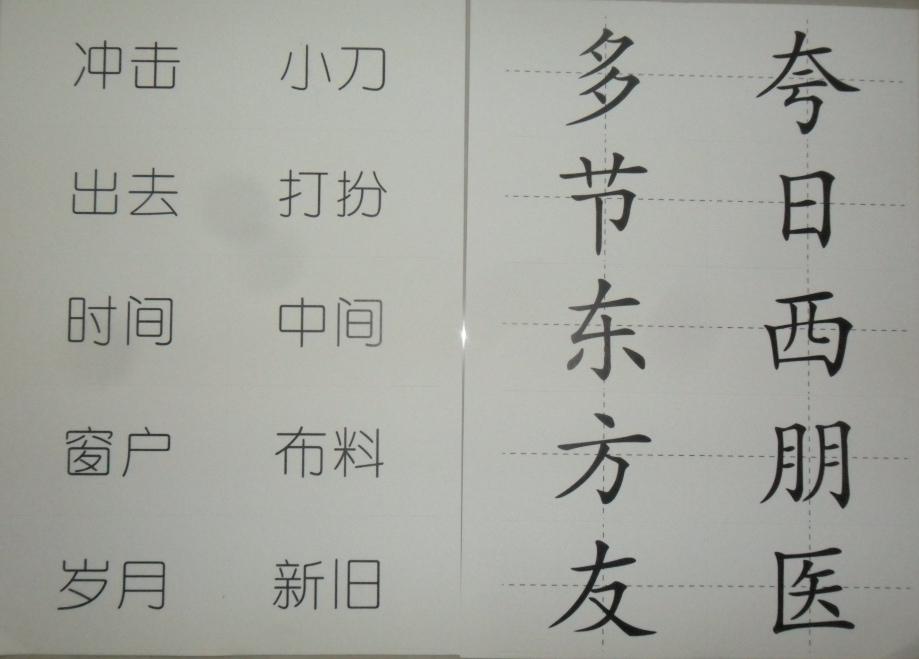 冲击 小刀
出去 打扮
时间 中间
窗户 布料
岁月 新旧
多 夸
节 日
东 西
方 朋
友 医